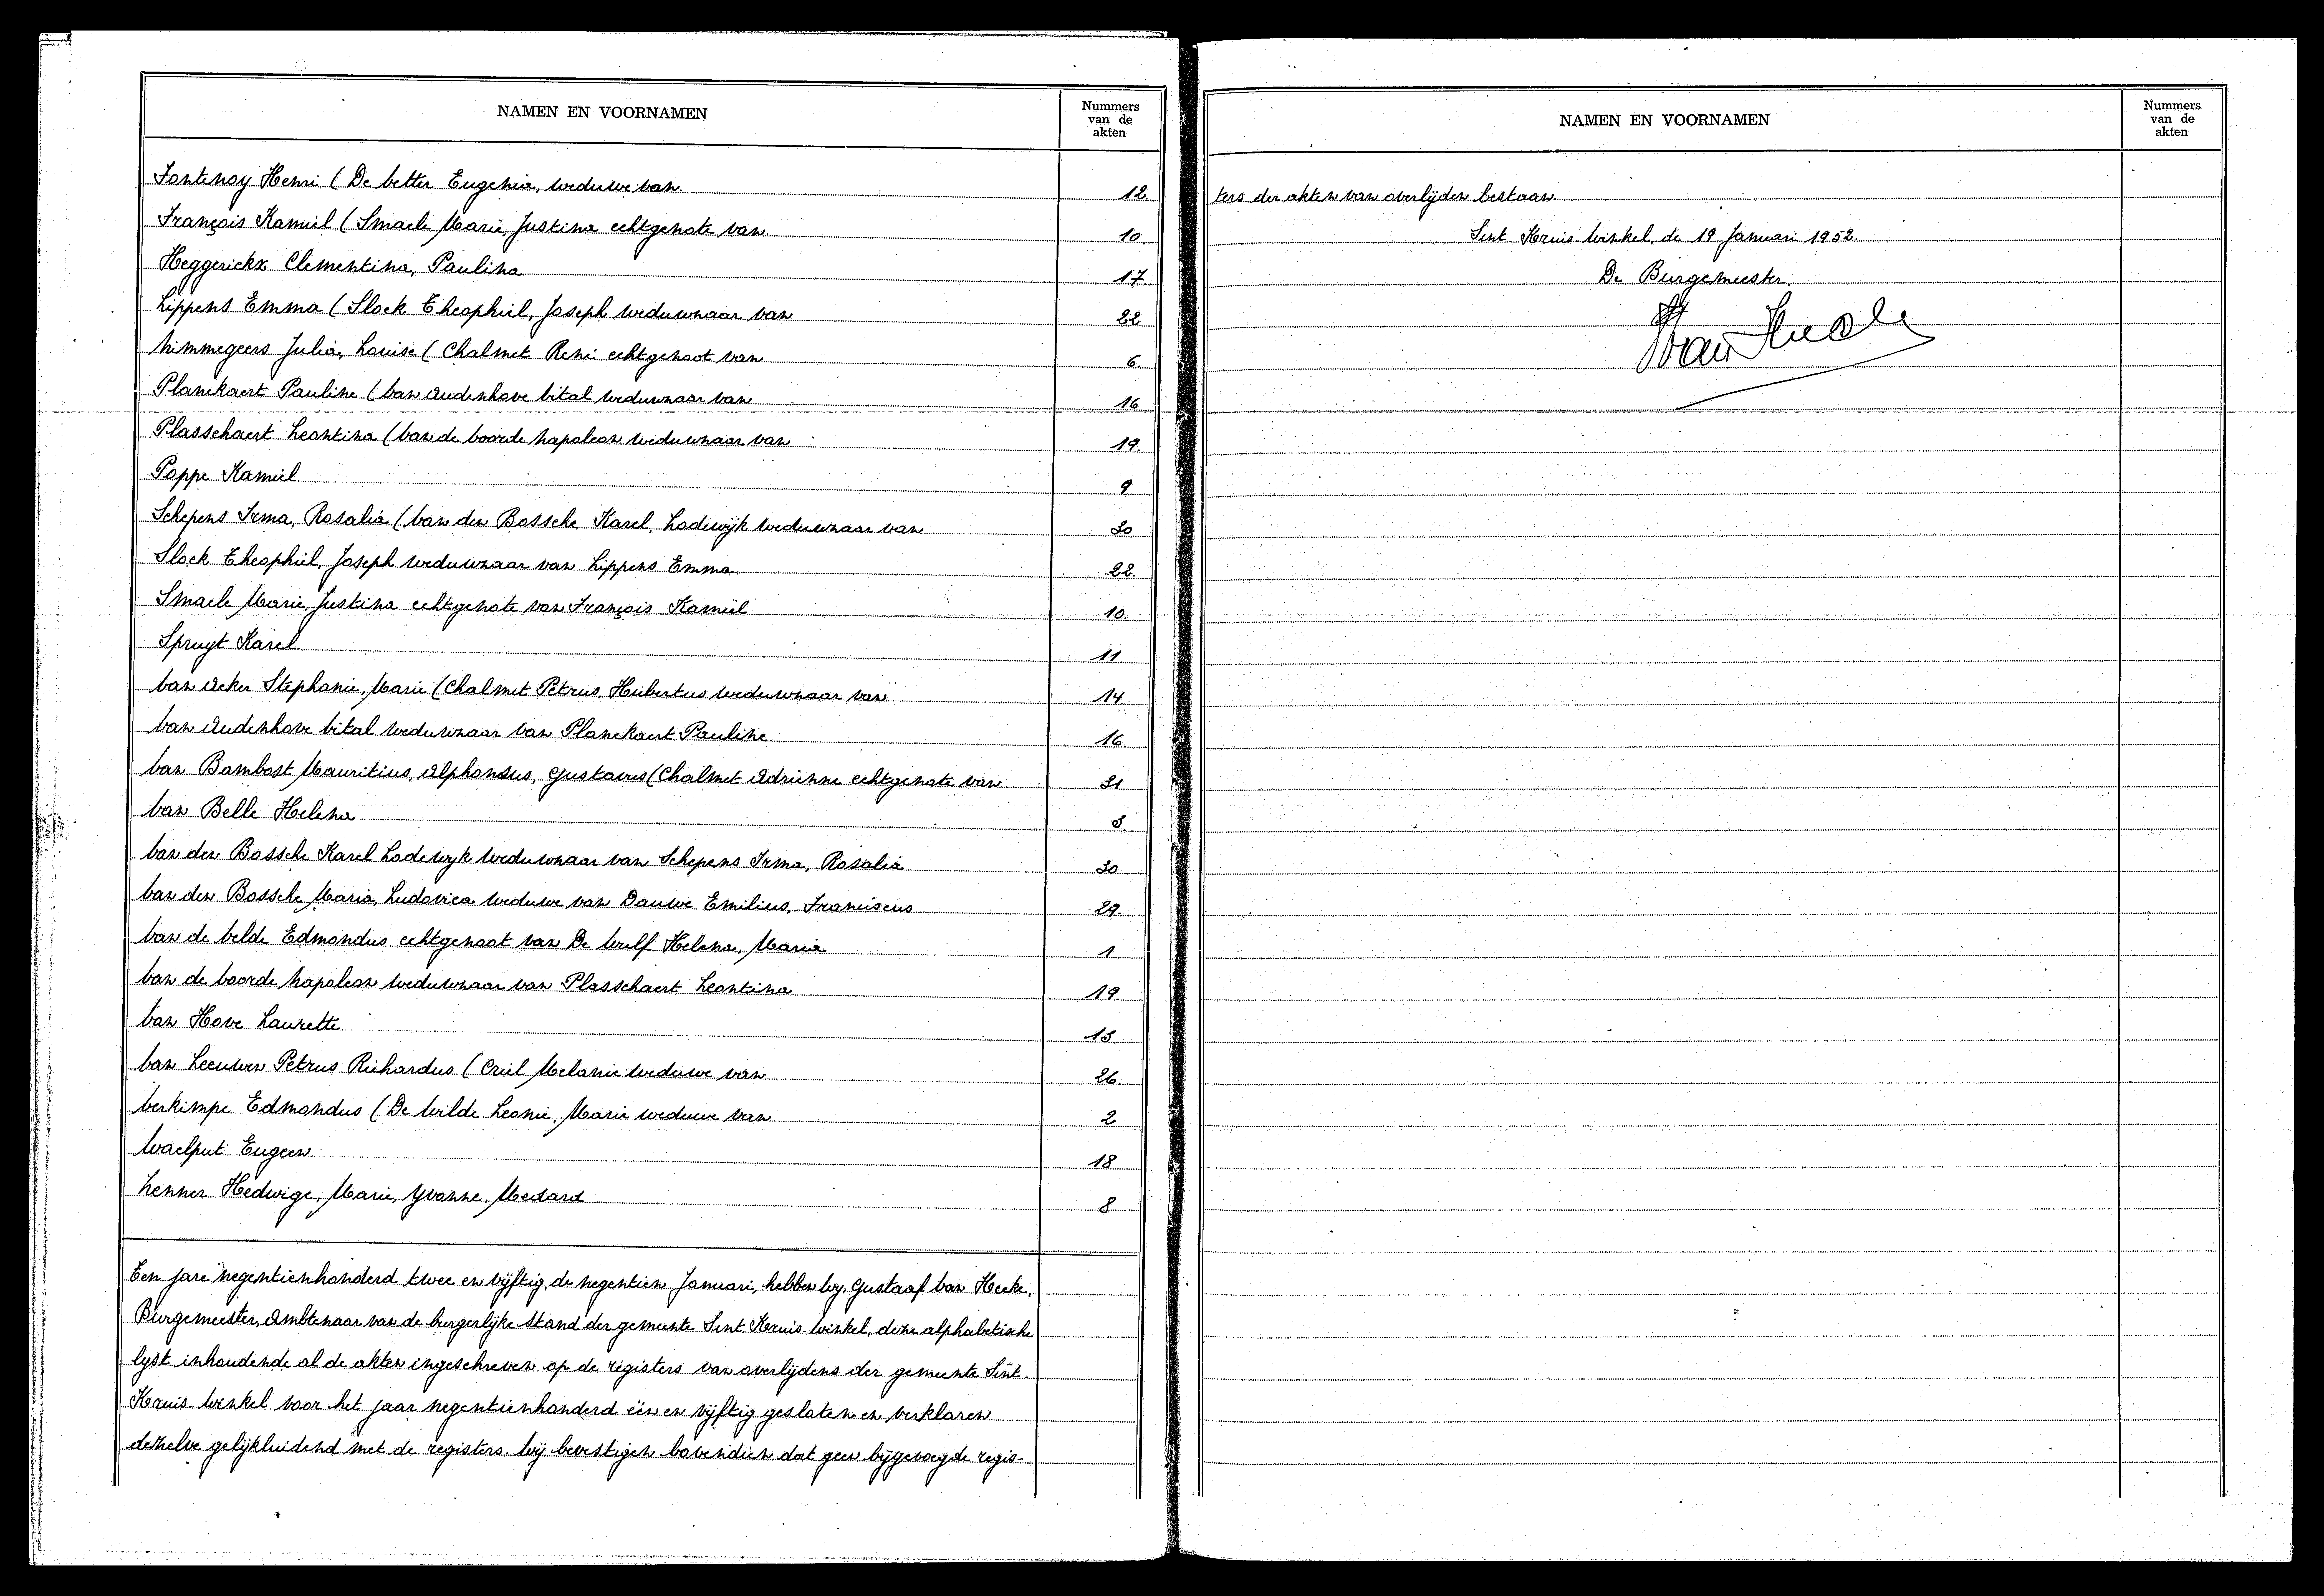 NAMEN EN VOORNAMEN
Nummers
van de
akten
Fontenoy Henri (De Vetter Eugenia, weduwe van 12
François Kamiel (Smaele Marie, Justina echtgenote van 10
Heggerickx Clementina, Paulina 17
Lippens Emma (Slock Theophiel, Joseph weduwnaar van 22
Nimmegeers Julia, Louise (Chalmet René echtgenoot van 6
Planckaert Pauline (Van Audenhove Vital weduwnaar van 16
Plasschaert Leontina (Van de Voorde Napoleon weduwnaar van 19
Poppe Kamiel 9
Schepens Irma, Rosalia (Van den Bossche Karel, Lodewijk weduwnaar van 30
Slock Theophiel, Joseph weduwnaar van Lippens Emma 22
Smaele Marie, Justina echtgenote van François Kamiel 10
Spruyt Karel 11
Van Acker Stephanie, Marie (Chalmet Petrus, Hubertus weduwnaar van 14
Van Audenhove Vital weduwnaar van Planckaert Pauline 16
Van Bambost Mauritius, Alphonsus, Gustavus (Chalmet Adrienne echtgenote van 31
Van Belle Helena 3
Van den Bossche Karel Lodewyk weduwnaar van Schepens Irma, Rosalia 30
Van den Bossche Maria, Ludovica weduwe van Dauwe Emilius, Franciscus 29
Van de Velde Edmondus echtgenoot van De Wulf Helena, Maria 1
Van de Voorde Napoleon weduwnaar van Plasschaert Leontina 19
Van Hove Laurette 13
Van Leeuwen Petrus Richardus (Criel Melanie weduwe van 26
Verkimpe Edmondus (De Wilde Leonie, Marie weduwe van 2
Waelput Eugeen 18
Zenner Hedwige, Marie, Yvonne, Medard 8
Ten jare negentienhonderd twee en vijftig, de negentien Januari, hebben wy, Gustaaf Van Hecke,
Burgemeester, Ambtenaar van de burgerlijke stand der gemeente Sint Kruis Winkel, deze alphabetische
lyst inhoudende al de akten ingeschreven op de registers van overlijdens der gemeente Sint
Kruis Winkel voor het jaar negentienhonderd één en vijftig gesloten en verklaren
dezelve gelijkluidend met de registers. Wij bevestigen bovendien dat geen bijgevoegde regis-
NAMEN EN VOORNAMEN
Nummers
van de
akten
ters der akten van overlijden bestaan
Sint Kruis Winkel, de 19 Januari 1952.
De Burgemeester,